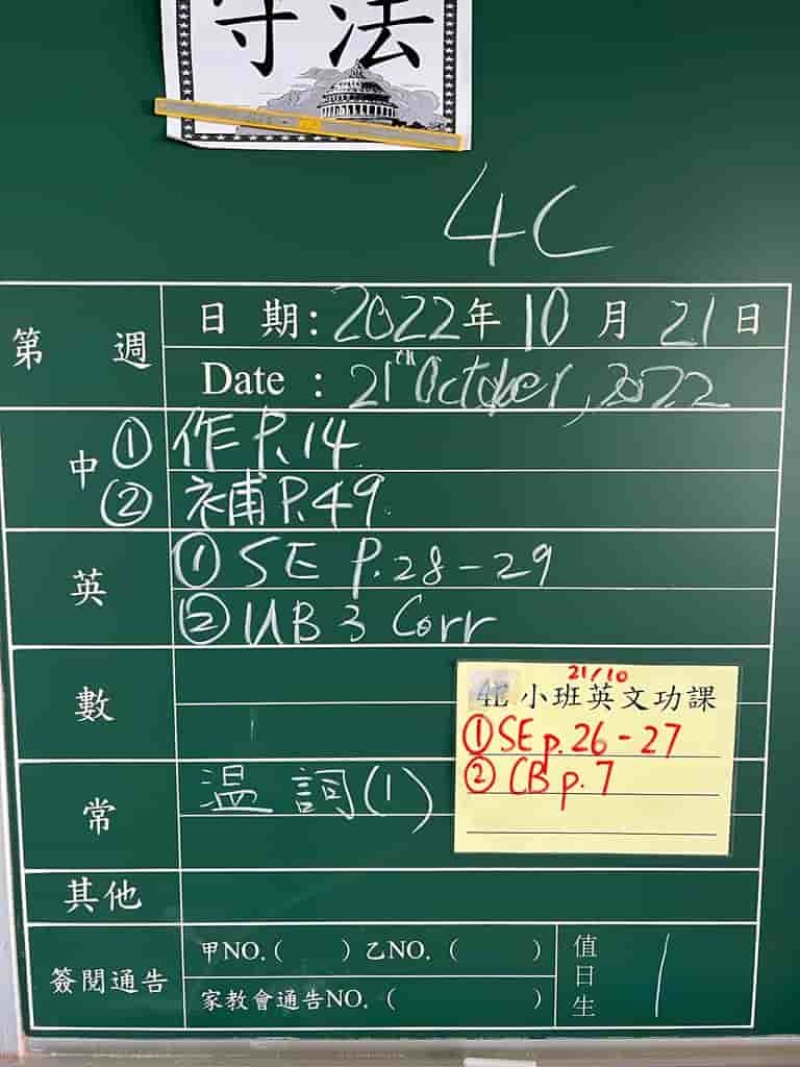 守法
4C
第 週
日 期：2022年 10 月 21 日
Date : 21st October, 2022
中 ① 作 P.14
② 補 P.49
英 ① SE P.28-29
② UB 3 Corr
數
21/10
小班英文功課
① SE p.26-27
② CB p.7
常 温 詞(1)
其他
簽閱通告 甲NO.( ) 乙NO.( )
家教會通告NO.( )
值日生 1